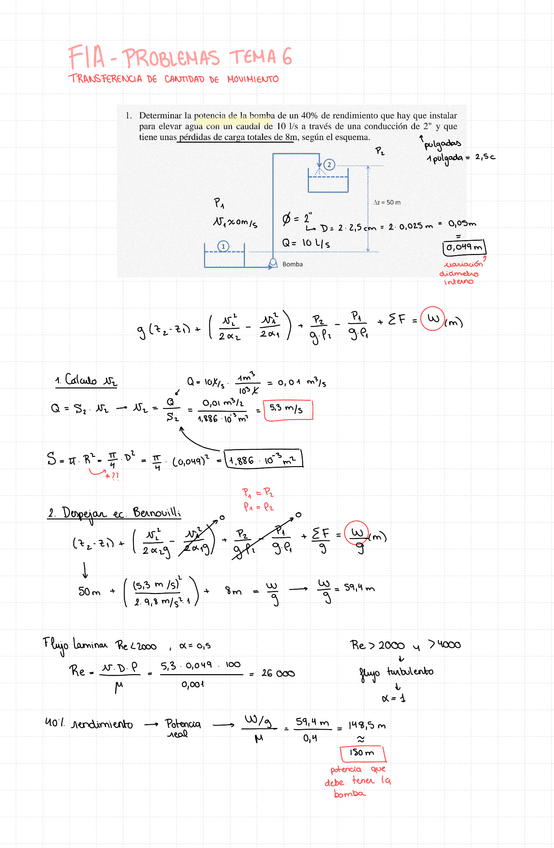 FIA - PROBLEMAS TEMA 6
TRANSFERENCIA DE CANTIDAD DE MOVIMIENTO
1. Determinar la potencia de la bomba de un 40% de rendimiento que hay que instalar
para elevar agua con un caudal de 10 l/s a través de una conducción de 2" y que
tiene unas pérdidas de carga totales de 8m, según el esquema.
pulgadas
1 pulgada = 2,5c
P₂
2
Δz = 50 m
P₁
V₁≈0m/s
Ø = 2"
↳ D = 2·2,5cm = 2·0,025m = 0,05m
=
0,049m
variación
diámetro
interno
Q = 10 L/s
1
Bomba
g(z₂-z₁) + (v₂²/2α₂ - v₁²/2α₁) + P₂/g·ρ₂ - P₁/g·ρ₁ + ΣF = W (m)
1. Calculo v₂
Q = 10 l/s · 1m³/10³ l = 0,01 m³/s
Q = S₂·v₂ → v₂ = Q/S₂ = 0,01 m³/s / 1,886·10⁻³ m² = 5,3 m/s
S = π·R² = π/4·D² = π/4·(0,049)² = 1,886·10⁻³ m²
??
P₁ = P₂
ρ₁ = ρ₂
2. Despejar ec. Bernouilli
(z₂-z₁) + (v₂²/2α₂g - v₁²/2α₁g) + P₂/gρ₂ - P₁/gρ₁ + ΣF/g = W/g (m)
0 0
50m + ((5,3 m/s)²/2·9,8 m/s²·1) + 8m = W/g → W/g = 59,4m
Flujo laminar Re<2000, α = 0,5
Re > 2000 y >4000
Re = v·D·ρ/μ = 5,3·0,049·100/0,001 = 26 000
flujo turbulento
α = 1
40% rendimiento → Potencia real → W/g / μ = 59,4 m/0,4 = 148,5 m
≈
150m
potencia que
debe tener la
bomba